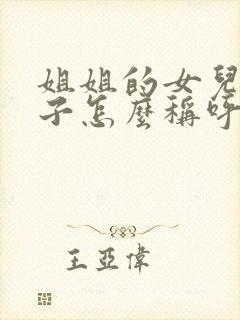 姐姐的女兒
子怎麼稱呼
王亞偉